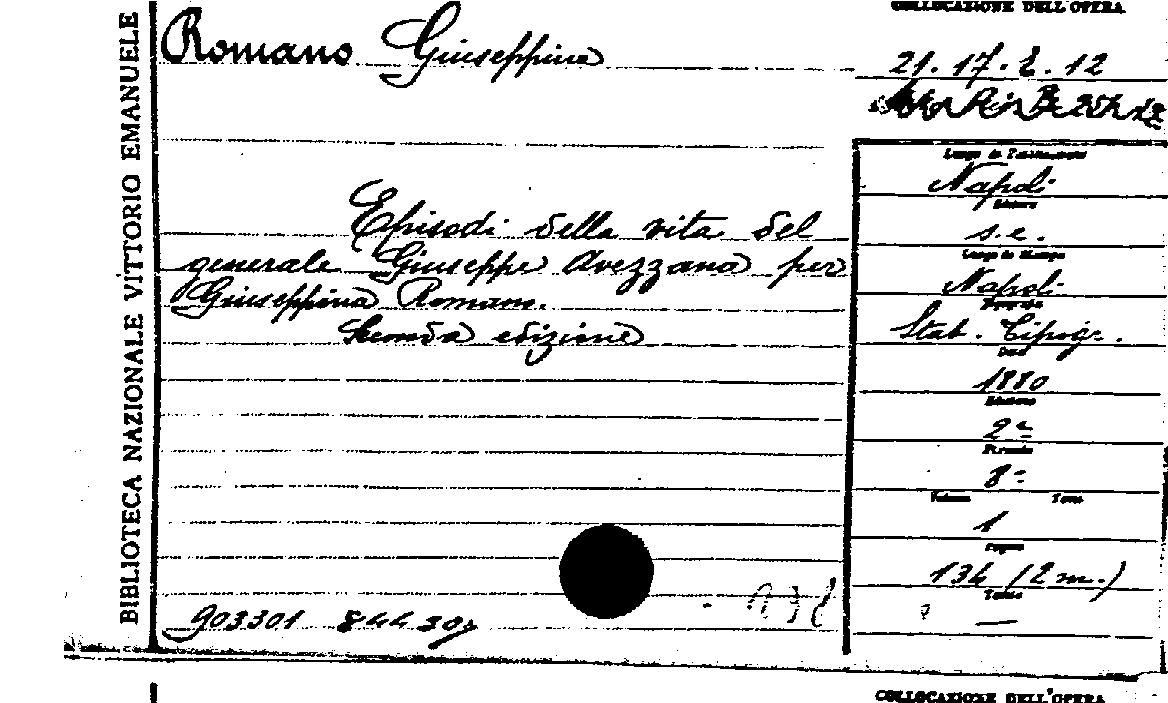 BIBLIOTECA NAZIONALE VITTORIO EMANUELE
Romano Giuseppina
Episodi della vita del
generale Giuseppe Avezzana per
Giuseppina Romano.
Seconda edizione
903301
COLLOCAZIONE DELL'OPERA
21. 17. E. 12
Napoli
Editore
s.e.
Luogo di Stampa
Napoli
Stab. Tipog.
Data
1880
Edizione
2ª
Formato
8°
Volume Tomo
1
Pagine
134 (2 m.)
—
COLLOCAZIONE DELL'OPERA